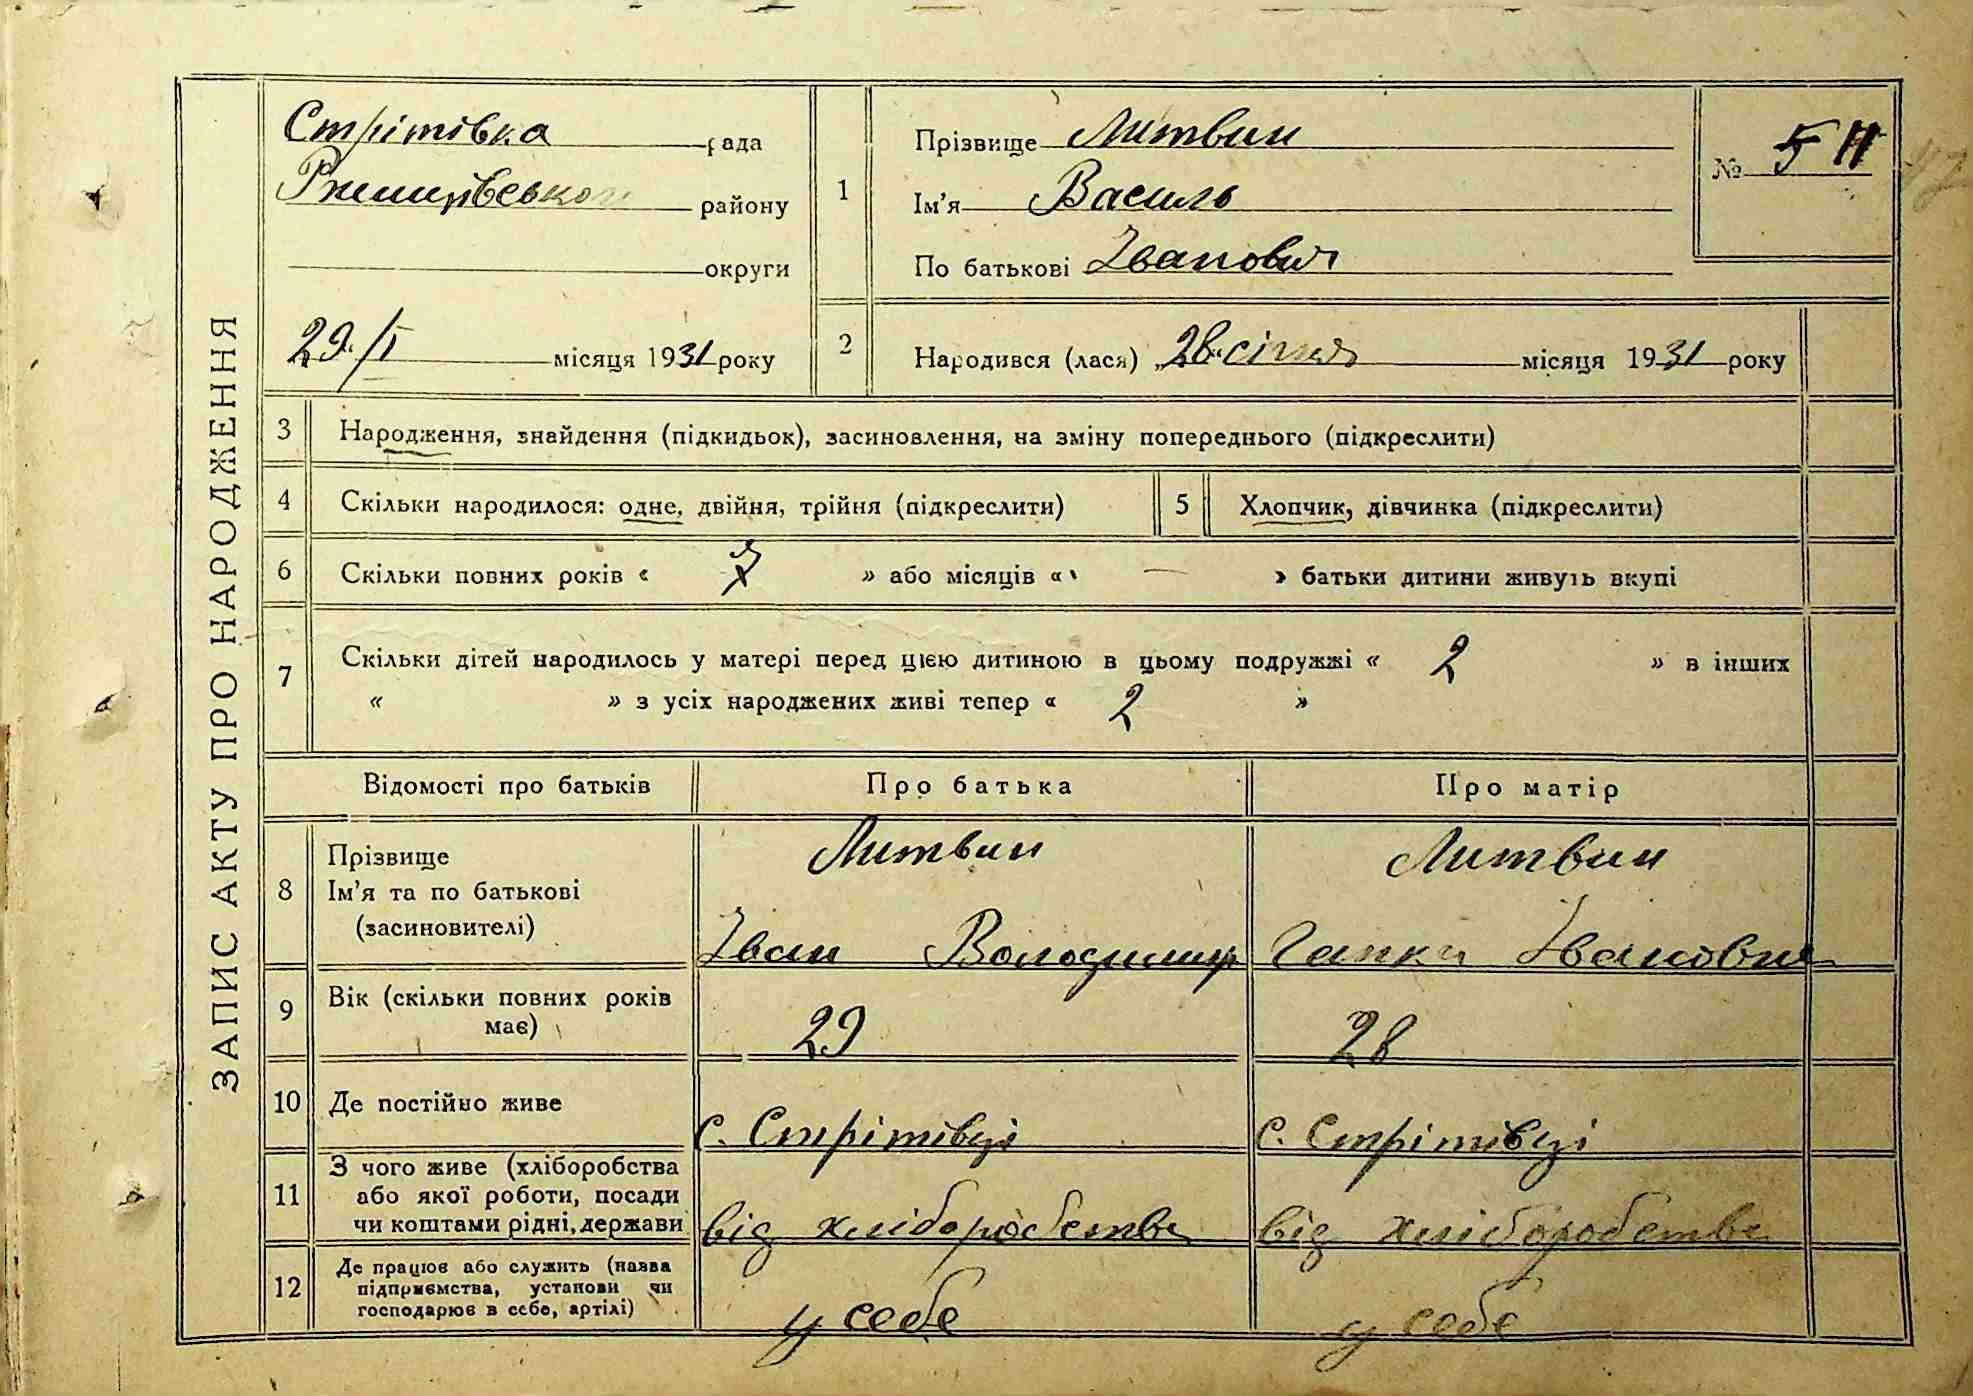 ЗАПИС АКТУ ПРО НАРОДЖЕННЯ
Стрітівка рада
Ржищівського району
округи
29/I місяця 1931 року
1
Прізвище Литвин
Ім'я Василь
По батькові Іванович
№ 5
2
Народився (лася) „28“ січня місяця 1931 року
3 Народження, знайдення (підкидьок), засиновлення, на зміну попереднього (підкреслити)
4 Скільки народилося: одне, двійня, трійня (підкреслити) 5 Хлопчик, дівчинка (підкреслити)
6 Скільки повних років « 7 » або місяців « — » батьки дитини живуть вкупі
7 Скільки дітей народилось у матері перед цією дитиною в цьому подружжі « 2 » в інших
« » з усіх народжених живі тепер « 2 »
Відомості про батьків Про батька Про матір
8 Прізвище
Ім'я та по батькові
(засиновителі)
Литвин
Іван Володимир
Литвин
Ганна Івановна
9 Вік (скільки повних років
має)
29 28
10 Де постійно живе с. Стрітівці с. Стрітівці
11 З чого живе (хліборобства
або якої роботи, посади
чи коштами рідні, держави
від хліборобства від хліборобства
12 Де працює або служить (назва
підприємства, установи чи
господарює в себе, артілі)
у себе у себе